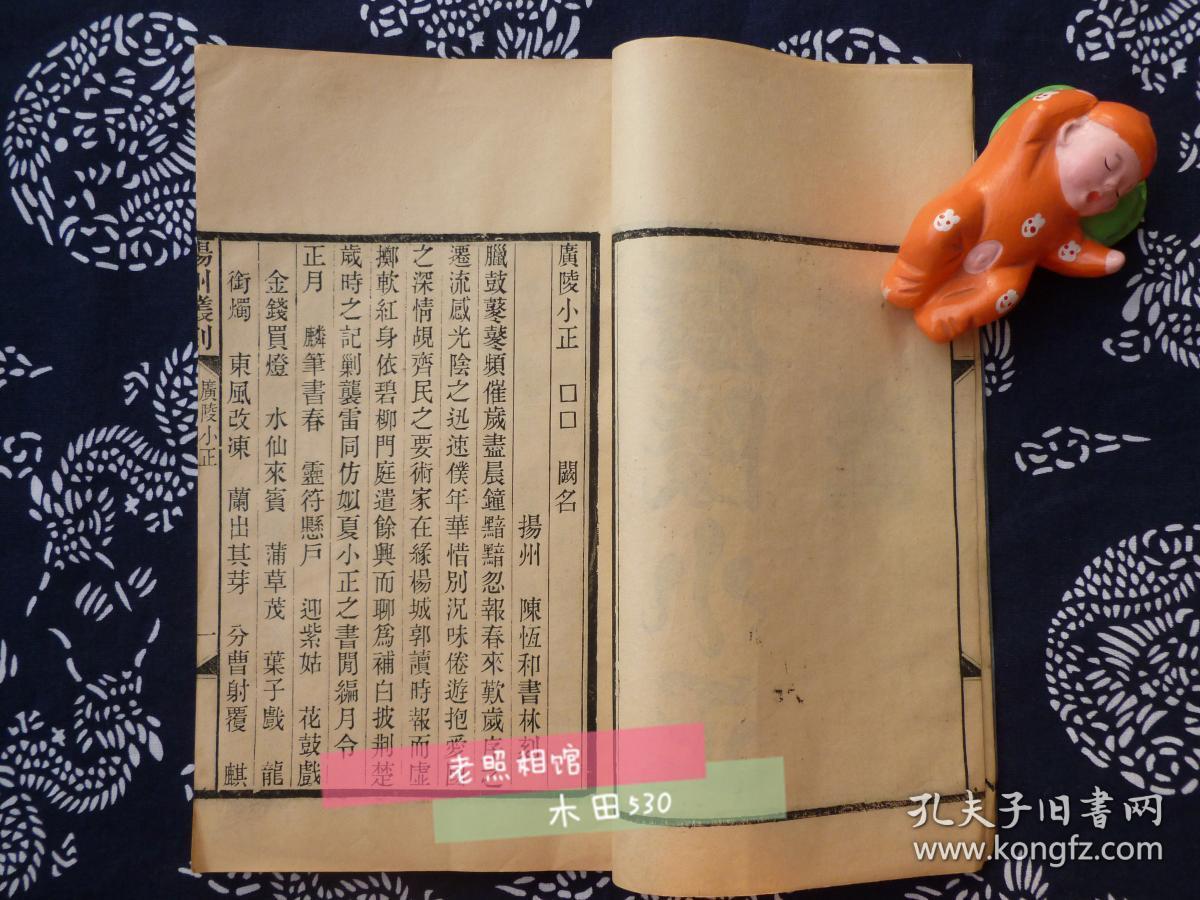 廣陵小正 □□ 闕名
揚州 陳恆和書林刻
臘鼓鼕鼕頻催歲盡晨鐘黯黯忽報春來歎歲序
遷流感光陰之迅速僕年華惜別況味倦遊抱愛
之深情覘齊民之要術家在綠楊城郭讀時報而虛
擲軟紅身依碧柳門庭遣餘興而聊爲補白披荆楚
歲時之記剿襲雷同仿姒夏小正之書閒編月令
正月 麟筆書春 靈符懸戶 迎紫姑 花鼓戲
金錢買燈 水仙來賓 蒲草茂 葉子戲 龍
銜燭 東風改凍 蘭出其芽 分曹射覆 麒
揚州叢刊 廣陵小正 一
老照相馆
木田530
孔夫子旧书网
www.kongfz.com